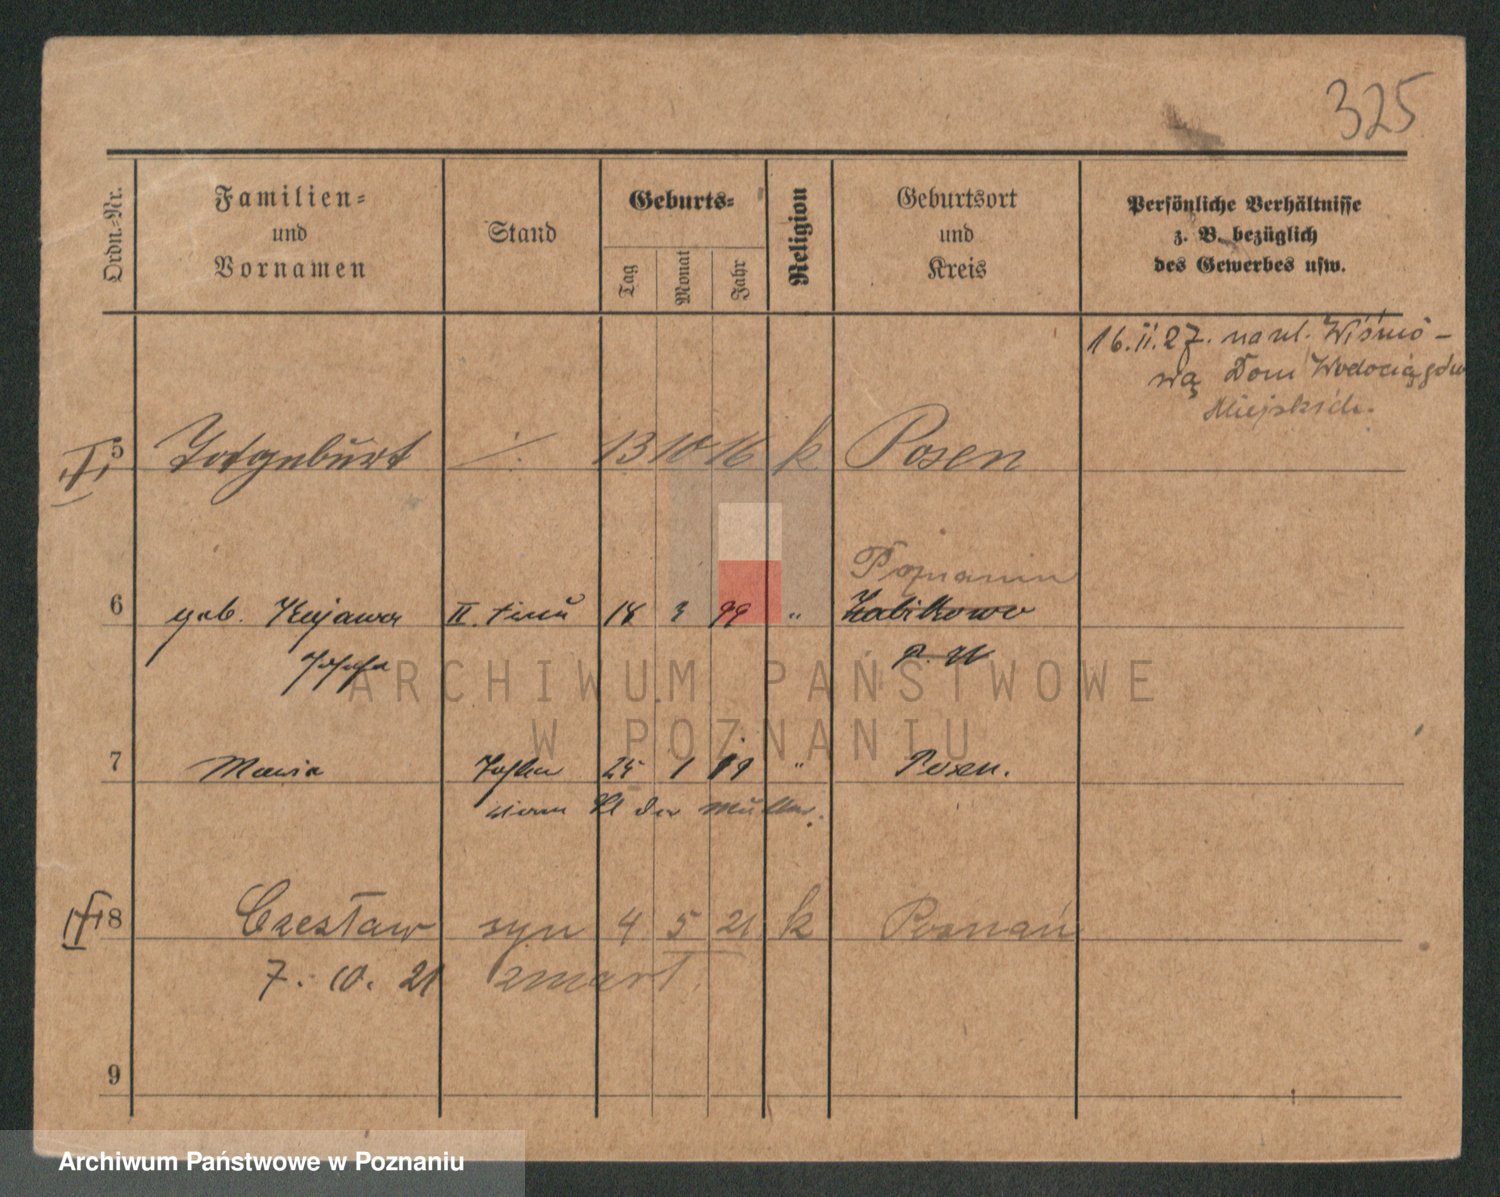 325
Ordn.-Nr.
Familien-
und
Vornamen
Stand
Geburts-
Tag
Monat
Jahr
Religion
Geburtsort
und
Kreis
Persönliche Verhältnisse
z. B. bezüglich
des Gewerbes usw.
16.II.27. na ul. Wiśnio-
wą Dom Wodociągów
Miejskich.
5 Totgeburt ./. 13 10 16 k Posen
Poznaniu
6 geb. Kujawa II. Frau 18 3 99 " Żabikowo
Josefa P. W
7 Maria Tochter 25 1 19 " Posen.
der Mutter.
8 Czesław syn 4 5 21 k Poznań
7. 10. 21 zmarł.
9
ARCHIWUM PAŃSTWOWE
W POZNANIU
Archiwum Państwowe w Poznaniu